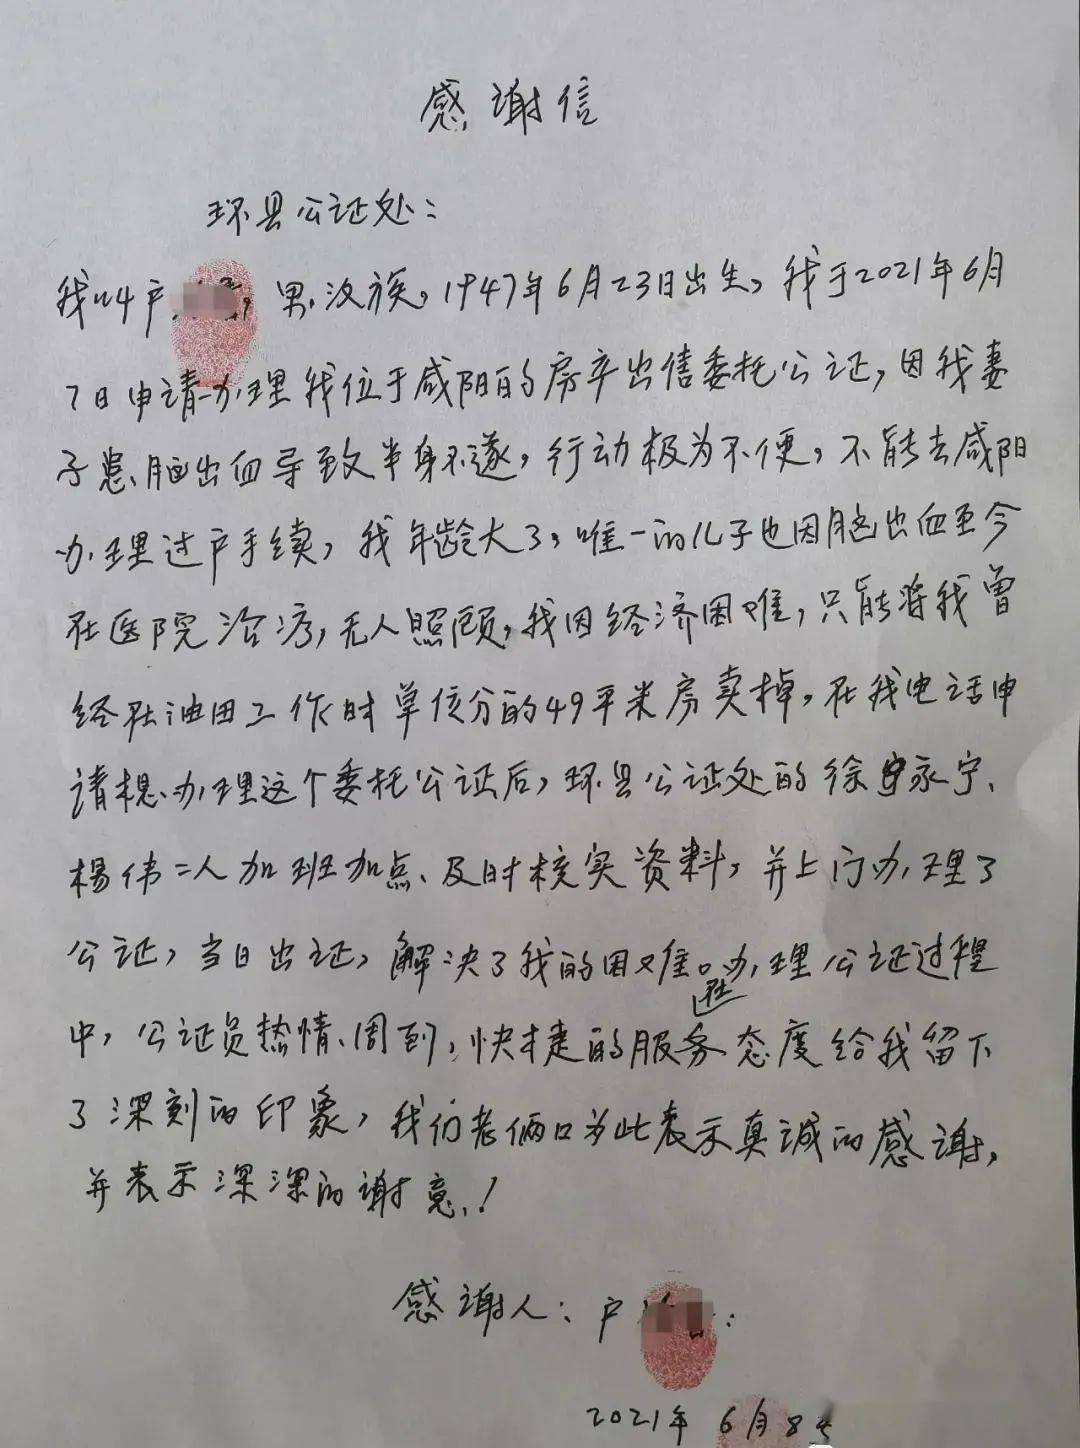 感谢信
环县公证处：
我叫户，男，汉族，1947年6月23日出生，我于2021年6月
7日申请办理我位于咸阳的房产出售委托公证，因我妻
子患脑出血导致半身不遂，行动极为不便，不能去咸阳
办理过户手续，我年龄大了，唯一的儿子也因脑出血至今
在医院治疗，无人照顾，我因经济困难，只能将我曾
经在油田工作时单位分的49平米房卖掉，在我电话申
请想办理这个委托公证后，环县公证处的徐永宁、
杨伟二人加班加点、及时核实资料，并上门办理了
公证，当日出证，解决了我的困难。在办理公证过程
中，公证员热情、周到，快捷的服务态度给我留下
了深刻的印象，我们老俩口为此表示真诚的感谢，
并表示深深的谢意！
感谢人：户
2021年6月8